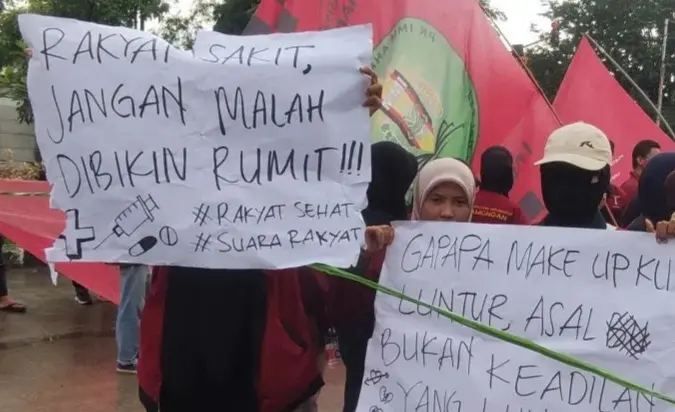 RAKYAT SAKIT,
JANGAN MALAH
DIBIKIN RUMIT!!!
#RAKYAT SEHAT
#SUARA RAKYAT
GAPAPA MAKE UP KU
LUNTUR, ASAL
BUKAN KEADILAN
YANG
PK IMM